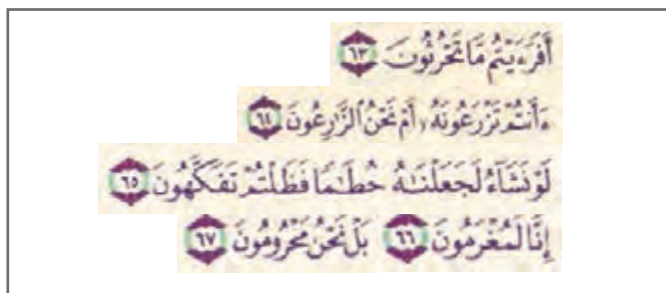 أَفَرَءَيْتُم مَّا تَحْرُثُونَ ٦٣
ءَأَنتُمْ تَزْرَعُونَهُۥٓ أَمْ نَحْنُ ٱلزَّٰرِعُونَ ٦٤
لَوْ نَشَآءُ لَجَعَلْنَٰهُ حُطَٰمًا فَظَلْتُمْ تَفَكَّهُونَ ٦٥
إِنَّا لَمُغْرَمُونَ ٦٦ بَلْ نَحْنُ مَحْرُومُونَ ٦٧